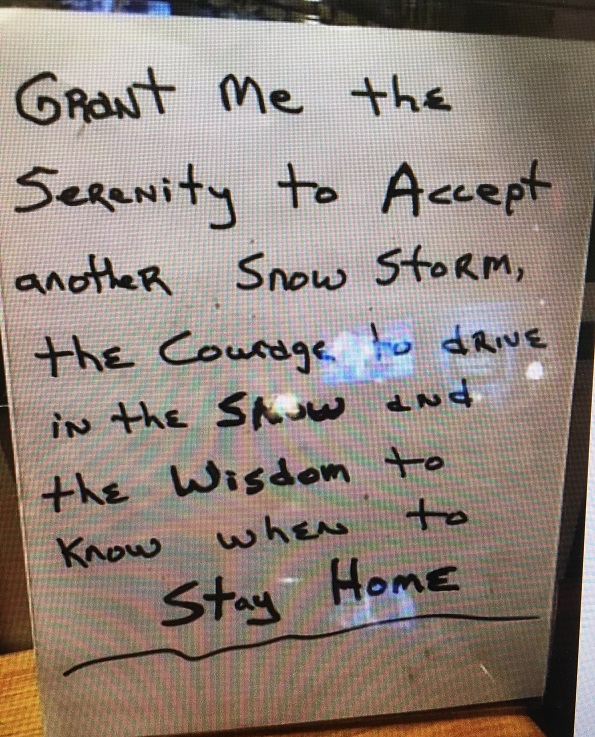 GRaNT Me the
SeReNity to Accept
anotheR Snow StoRM,
the Courage to dRIVE
iN the Snow aNd
the Wisdom to
Know wheN to
Stay HomE